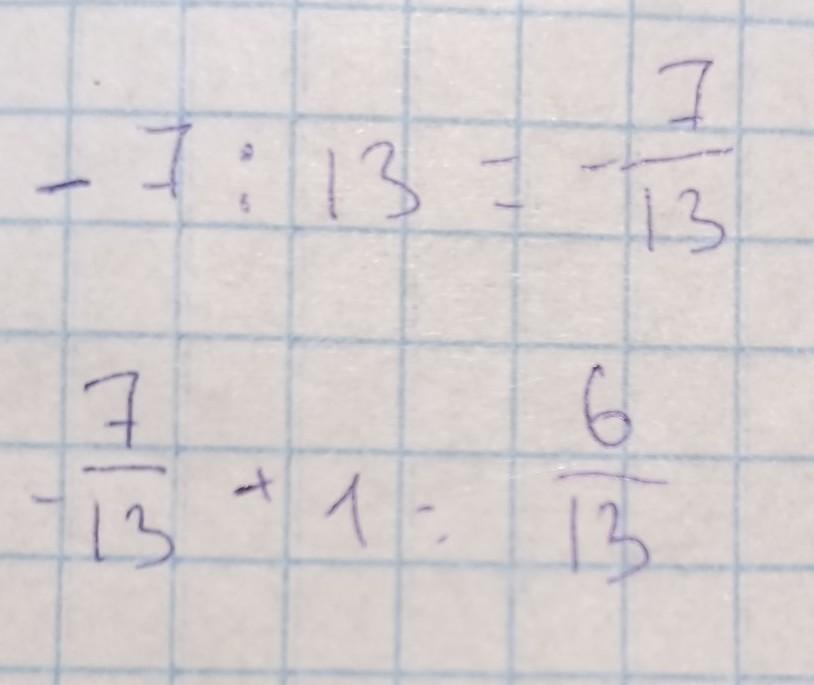 - 7 : 13 = - 7/13
- 7/13 + 1 = 6/13